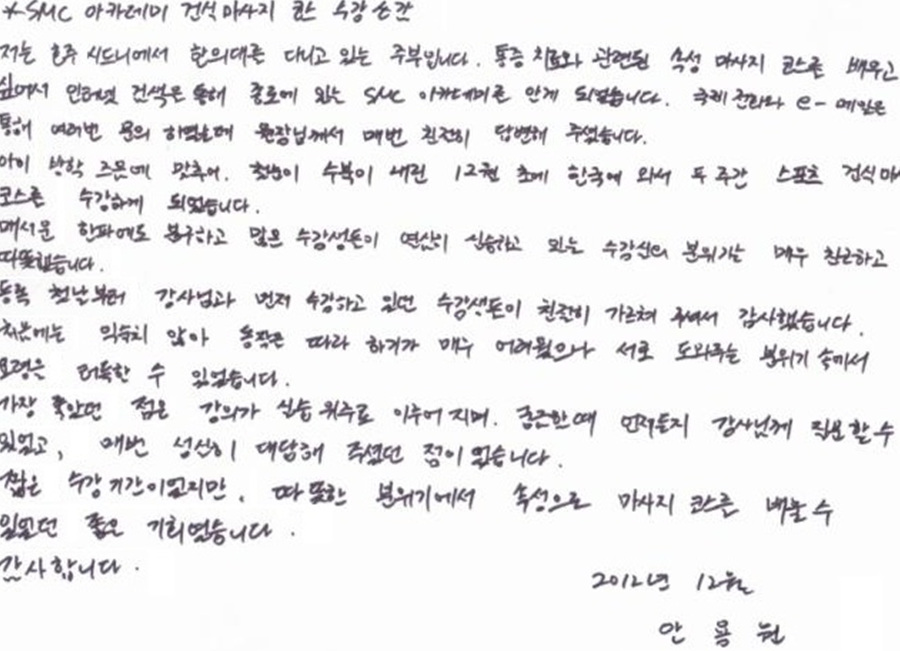 *SMC 아카데미 건식마사지 코스 수강 소감
저는 호주 시드니에서 한의대를 다니고 있는 주부입니다. 통증 치료와 관련된 속성 마사지 코스를 배우고
싶어서 인터넷 검색을 통해 종로에 있는 SMC 아카데미를 알게 되었습니다. 국제 전화와 e-메일을
통해 여러번 문의 하였을때 원장님께서 매번 친절히 답변해 주셨습니다.
아이 방학 즈음에 맞추어, 첫눈이 수북이 내린 12월 초에 한국에 와서 두 주간 스포츠 건식마
코스를 수강하게 되었습니다.
매서운 한파에도 불구하고 많은 수강생들이 열심히 실습하고 있는 수강실의 분위기는 매우 친근하고
따뜻했습니다.
등록 첫날부터 강사님과 먼저 수강하고 있던 수강생들이 친절히 가르쳐 주셔서 감사했습니다.
처음에는 익숙치 않아 동작을 따라 하기가 매우 어려웠으나 서로 도와주는 분위기 속에서
요령을 터득할 수 있었습니다.
가장 좋았던 점은 강의가 실습 위주로 이루어지며, 궁금할때 언제든지 강사님께 질문할 수
있었고, 매번 성실히 대답해 주셨던 점이었습니다.
짧은 수강기간이었지만, 따뜻한 분위기에서 속성으로 마사지 코스를 배울 수
있었던 좋은 기회였습니다.
감사합니다.
2012년 12월
안 용 원